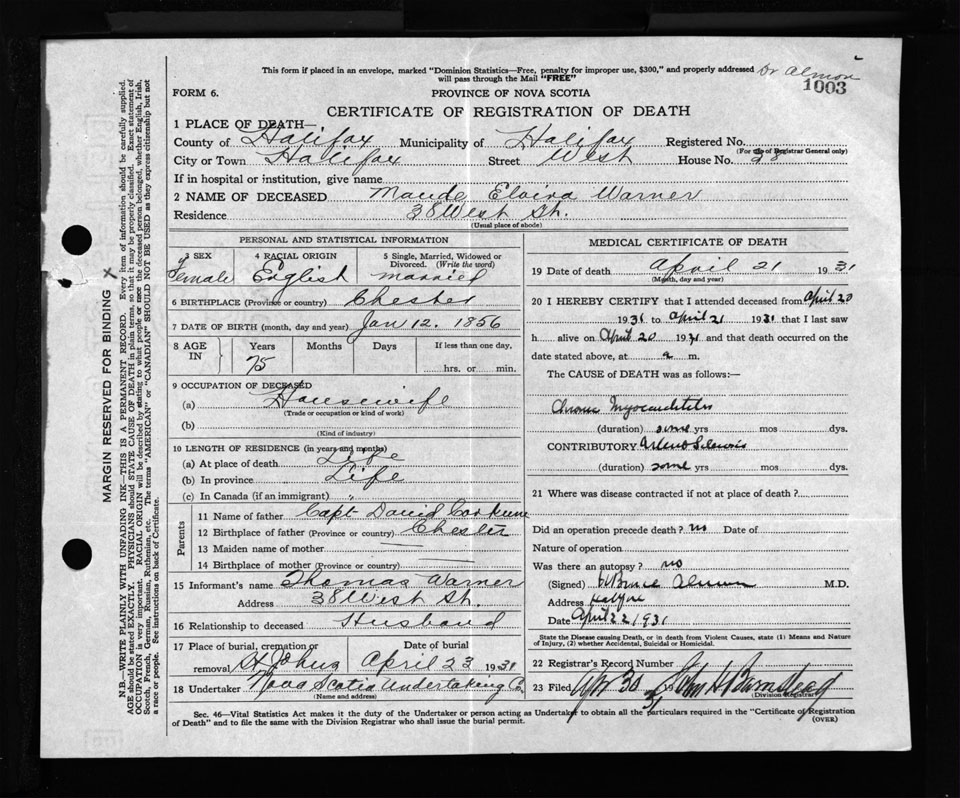 This form if placed in an envelope, marked "Dominion Statistics—Free, penalty for improper use, $300," and properly addressed Dr Almon
will pass through the Mail "FREE"
1003
FORM 6.
PROVINCE OF NOVA SCOTIA
CERTIFICATE OF REGISTRATION OF DEATH
1 PLACE OF DEATH—
County of Halifax Municipality of Halifax Registered No.
(For use of Registrar General only)
City or Town Halifax Street West House No. 38
If in hospital or institution, give name
2 NAME OF DECEASED Maude Warner
Residence 38 West St.
(Usual place of abode)
PERSONAL AND STATISTICAL INFORMATION
3 SEX 4 RACIAL ORIGIN 5 Single, Married, Widowed or
Divorced. (Write the word)
Female English married
6 BIRTHPLACE (Province or country) Chester
7 DATE OF BIRTH (month, day and year) Jan 12. 1856
8 AGE IN Years Months Days If less than one day,
75 hrs. or min.
9 OCCUPATION OF DECEASED
(a) Housewife
(Trade or occupation or kind of work)
(b)
(Kind of industry)
10 LENGTH OF RESIDENCE (in years and months)
(a) At place of death Life
(b) In province Life
(c) In Canada (if an immigrant) "
Parents
11 Name of father Capt David
12 Birthplace of father (Province or country) Chester
13 Maiden name of mother
14 Birthplace of mother (Province or country)
15 Informant's name Thomas Warner
Address 38 West St.
16 Relationship to deceased Husband
17 Place of burial, cremation or Date of burial
removal St Johns April 23 1931
18 Undertaker Nova Scotia Undertaking Co
(Name and address)
MEDICAL CERTIFICATE OF DEATH
19 Date of death April 21 1931
(Month, day and year)
20 I HEREBY CERTIFY that I attended deceased from April 20
1931 to April 21 1931 that I last saw
h alive on April 20 1931 and that death occurred on the
date stated above, at a m.
The CAUSE of DEATH was as follows:—
Chronic Myocarditis
(duration) some yrs mos dys.
CONTRIBUTORY Arterio Sclerosis
(duration) some yrs mos dys.
21 Where was disease contracted if not at place of death?
Did an operation precede death? no Date of
Nature of operation
Was there an autopsy? no
(Signed) Bruce Almon M.D.
Address Halifax
Date April 22 1931
State the Disease causing Death, or in death from Violent Causes, state (1) Means and Nature
of Injury, (2) whether Accidental, Suicidal or Homicidal.
22 Registrar's Record Number
23 Filed Apr 30 1931 John H Barnstead
(Division Registrar)
Sec. 46—Vital Statistics Act makes it the duty of the Undertaker or person acting as Undertaker to obtain all the particulars required in the "Certificate of Registration
of Death" and to file the same with the Division Registrar who shall issue the burial permit.
(OVER)
MARGIN RESERVED FOR BINDING X
N.B.—WRITE PLAINLY WITH UNFADING INK—THIS IS A PERMANENT RECORD. Every item of information should be carefully supplied.
AGE should be stated EXACTLY. PHYSICIANS should STATE CAUSE OF DEATH in plain terms, so that it may be properly classified. Exact statement of
OCCUPATION is very important. RACIAL ORIGIN will be described by stating to what people or race the deceased person belonged, whether English, Irish,
Scotch, French, German, Russian, Ruthenian, etc. The terms "AMERICAN" or "CANADIAN" SHOULD NOT BE USED as they express citizenship but not
a race or people. See instructions on back of Certificate.